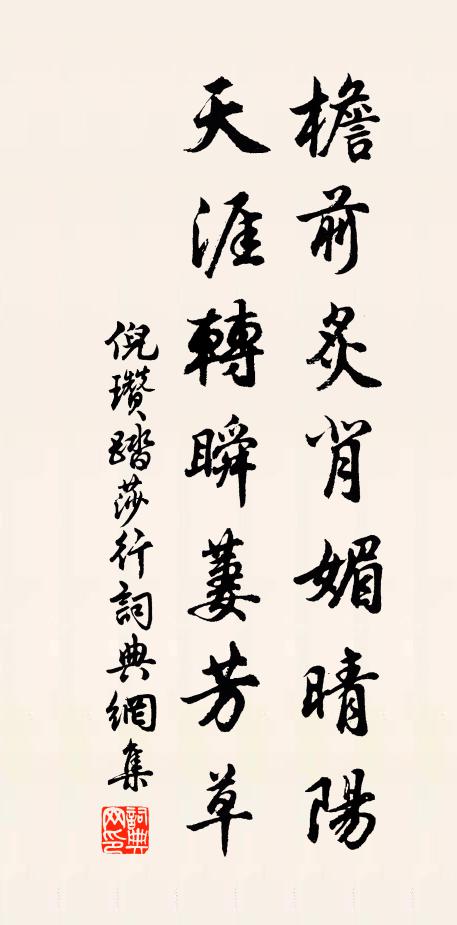 檐前炙背媚晴陽
天涯轉瞬萋芳草
倪瓚踏莎行詞典網集
詞典
网印